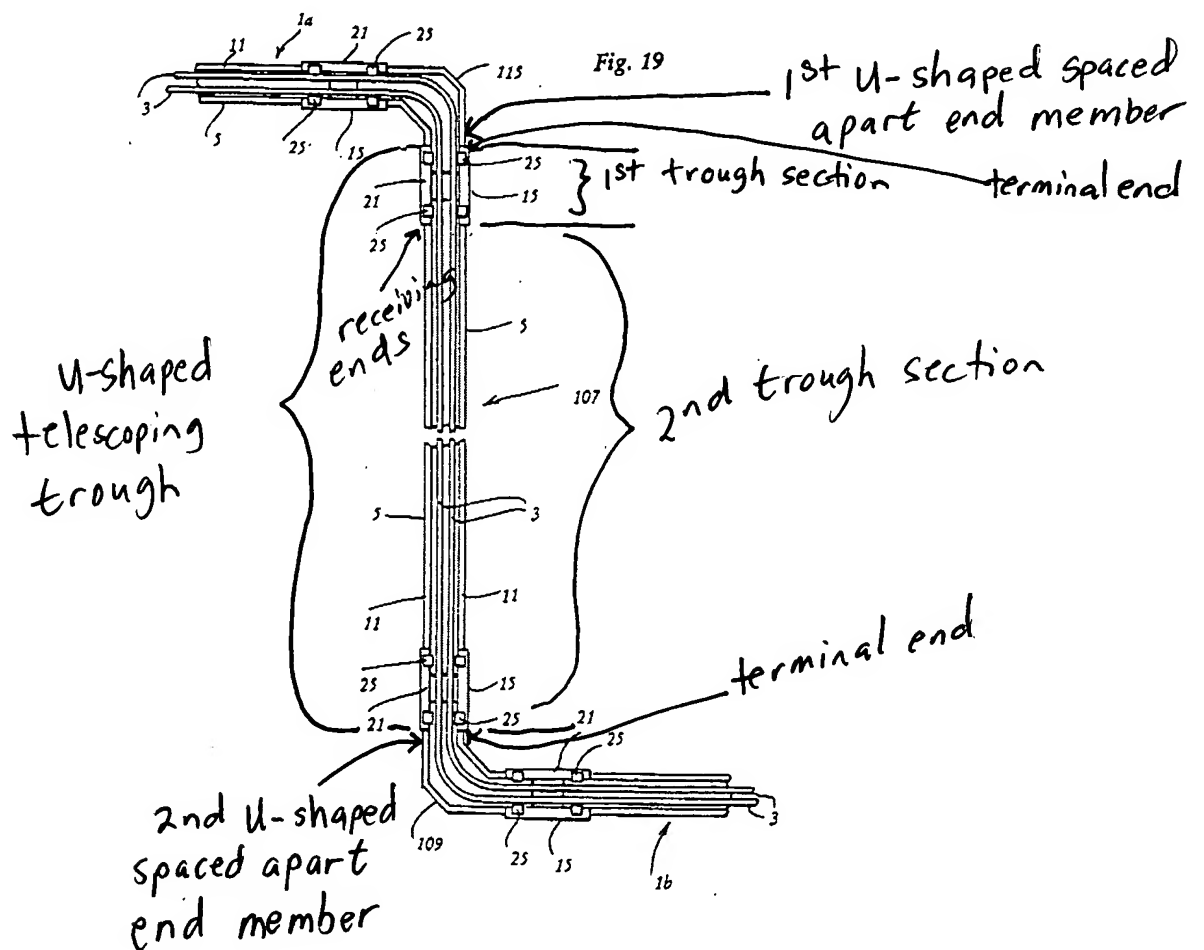 1a
11
21
25
Fig. 19
115
3
5
25
15
1st U-shaped spaced
apart end member
25
1st trough section
terminal end
21
15
25
receiving
ends
5
U-shaped
telescoping
trough
107
2nd trough section
5
3
11
11
terminal end
25
21
15
21
25
21
25
2nd U-shaped
spaced apart
end member
109
25
15
3
1b